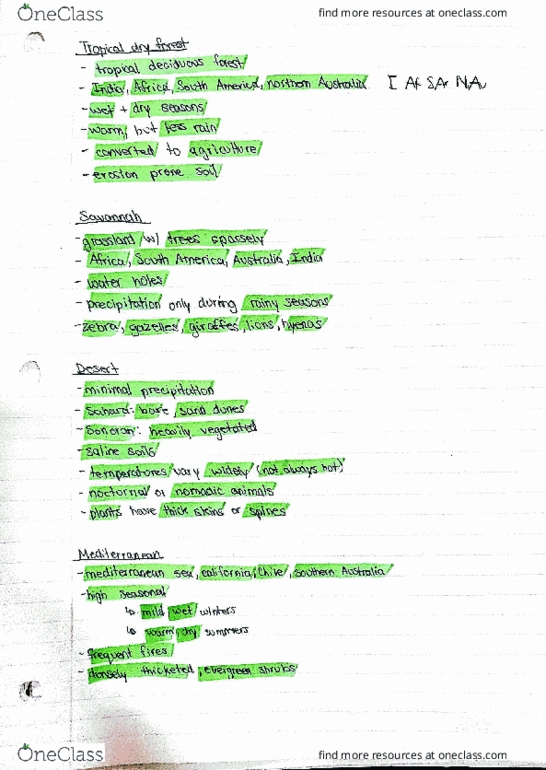 OneClass
find more resources at oneclass.com
Tropical dry forest
- tropical deciduous forest
- India, Africa, South America, northern Australia I Af SAr NAu
- wet + dry seasons
- warm, but less rain
- converted to agriculture
- erosion prone soil
Savannah
- grassland w/ trees sparsely
- Africa, South America, Australia, India
- water holes
- precipitation only during rainy seasons
- zebra, gazelles, giraffes, lions, hyenas
Desert
- minimal precipitation
- Sahara: bare, sand dunes
- Sonoran: heavily vegetated
- saline soils
- temperatures vary widely (not always hot)
- nocturnal or nomadic animals
- plants have thick skins or spines
Mediterranean
- mediterranean sea, california, Chile, southern Australia
- high seasonal
↳ mild wet winters
↳ warm dry summers
- frequent fires
- densely thicketed, evergreen shrubs
OneClass
find more resources at oneclass.com